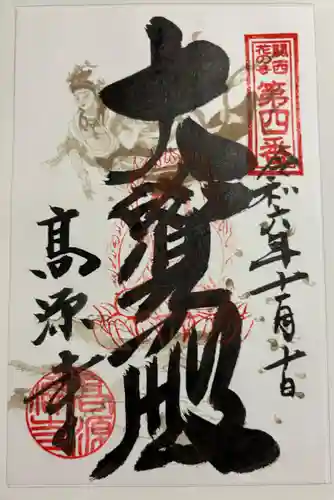 関西
花の寺
第四番
令和六年十一月十日
大寶殿
高源寺